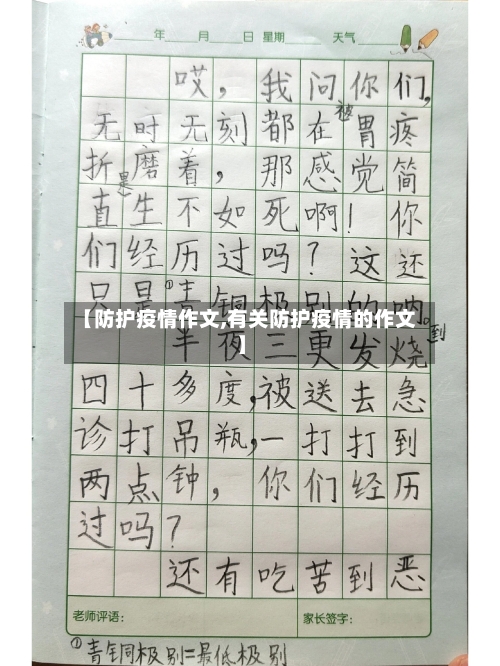 年 月 日 星期 天气
哎，我问你们，
无时无刻都在被胃疼
折磨着，那感觉简
直是生不如死啊！你
们经历过吗？这还
只是①青铜极别的呐。
【防护疫情作文,有关防护疫情的作文
】
半夜三更发烧到
四十多度，被送去急
诊打吊瓶，一打打到
两点钟，你们经历
过吗？
还有吃苦到恶
老师评语：
家长签字：
①青铜极别=最低极别